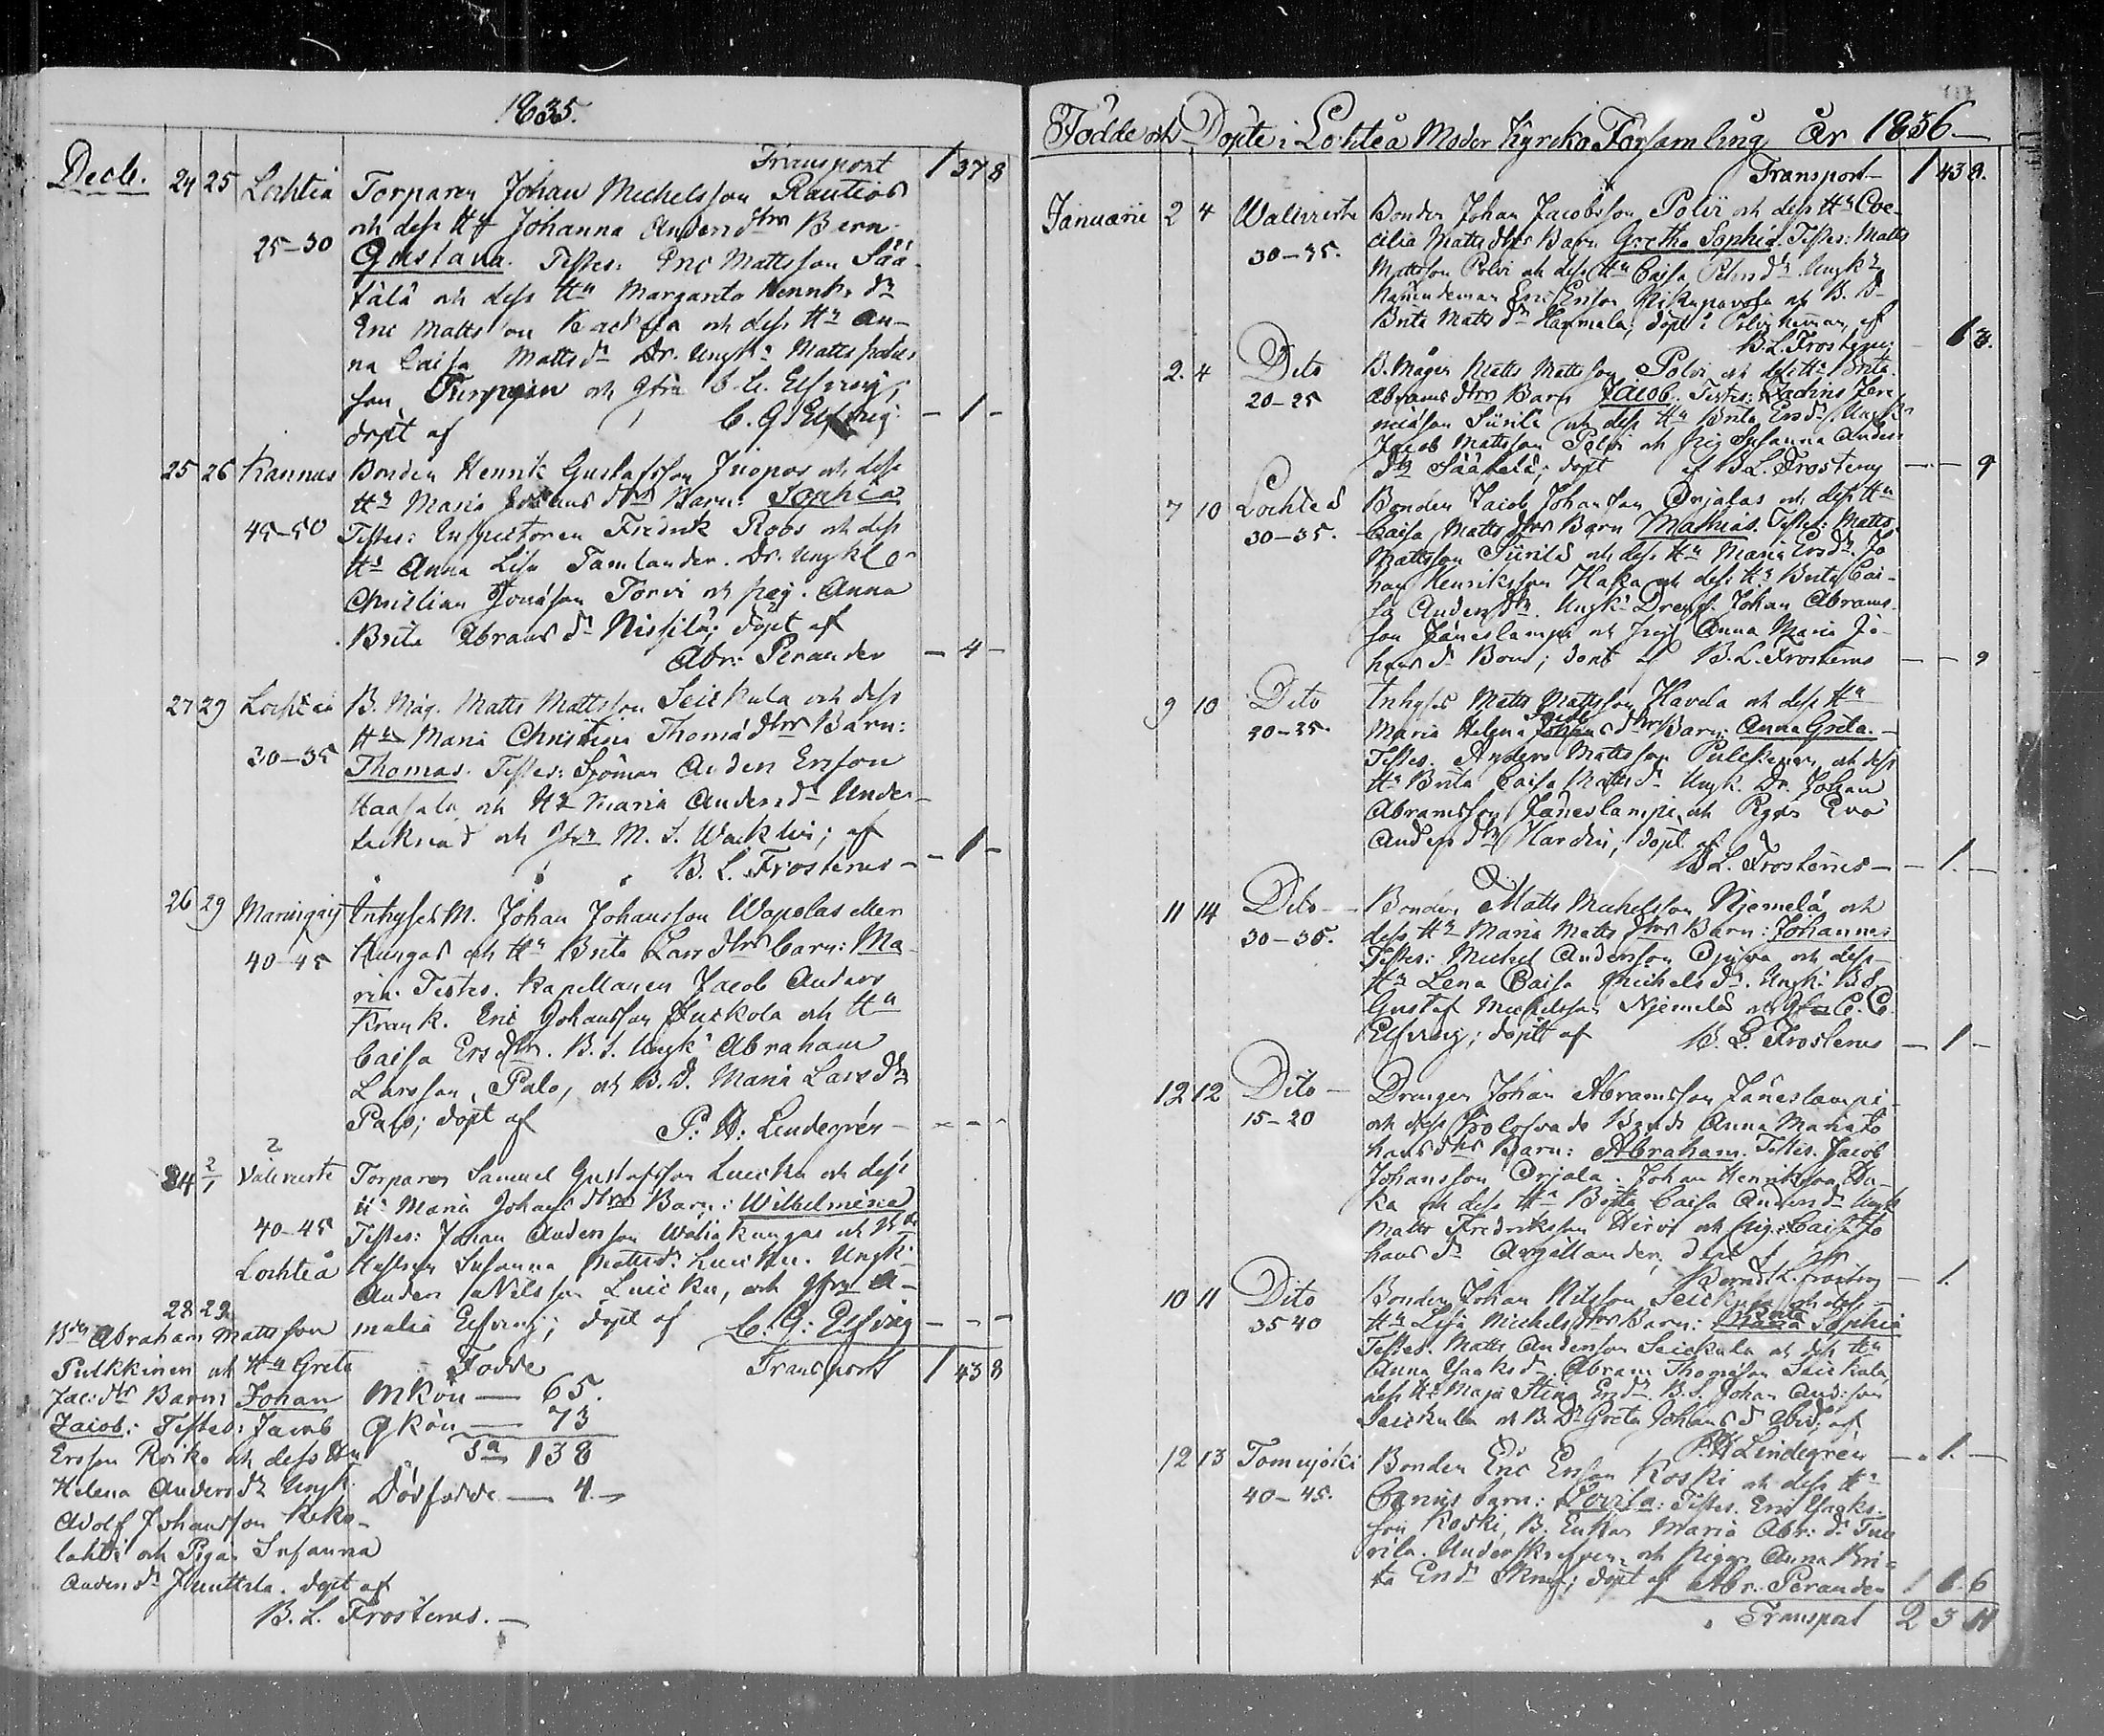 1835.
Transport 1 37 8
Decb. 24 25 Lochteå Torparen Johan Michelsson Rautios
och dess H:u Johanna Anders dtrs Barn
25-30 Gustava. Testes: Eric Mattsson Sää-
kälä och dess H:u Margareta Henriks d:r
Eric Mattsson och dess H:u An-
na Caisa Matts d:r Dr. Ungk:
son och C. Elfving;
döpt af C. G. Elfving. - 1 -
25 26 Kannus Bonden Henrik Gustafsson och dess
H:u Maria dtrs Barn: Sophia
45-50 Testes: Inspectoren Fredrik Roos och dess
H:u Anna Lisa Tamlander. Dr. Ungk
Christian Jonasson Torvi och pig. Anna
Brita Abrams d:r Nissilä; döpt af
Abr: Perander - 4 -
27 29 Lochteå B. Måg. Matts Mattsson Seickula och dess
H:u Maria Christina Thomæ dtrs Barn:
30-35 Thomas. Testes: Sjöman Anders Ersson
Haapala och H:u Maria Anders d:r Under-
och M. S. Wacklin; af
B. L. Frosterus - - 1 -
26 29 Maringais Inhyses M. Johan Johansson Wapolas eller
Kungas och H:u Brita Lars dtrs barn: Ma-
40-45 ria. Testes. Kapellanen Jacob Anders
Krank. Eric Johansson Juckola och H:u
Caisa Ers dtr. B. S. Ungk: Abraham
Larsson Palo, och B. D. Maria Lars d:r
Palo; döpt af P. H: Lindegrén - - - -
24 2/1 Valiveste Torparen Samuel Gustafsson Luicku och dess
H:u Maria Johans dtrs Barn: Wilhelmina
40-45 Testes: Johan Andersson Walikangas och
Lochteå Hustrun Susanna Matts d: Luicku. Ungk:
Anders Nilsson Luicku, och Jfru A-
malia Elfving; döpt af C. G: Elfving - - -
28 29
Abraham Mattsson
Pulkkinen och H:u Greta
Jac: dtr Barn: Johan
Jacob: Testes: Jacob
Ersson Roiko och dess H:u
Helena Anders d:r Ungk:
Adolf Johansson Keko-
lahti och Pigan Susanna
Anders d: Junttila. döpt af
B. L. Frosterus. -
Transport 1 43 8
Födde
Mkön - 65.
Qkön - 73
S:a 138
Dödfödde - 4 -
Födde och Döpte i Lohteå Moder Kyrko Församling år 1836. -
Transport 1 43 8.
Januarii 2 4 Waliveste Bonden Johan Jacobsson Polvi och dess H:u Cæ-
cilia Matts dtrs Barn Gretha Sophia. Testes: Matts
30-35. Mattsson Polvi och dess H:u Caisa Pehrs d:r Ungk:
Nämndeman Eric Ersson och B. D
Brita Matts d:r Hammala; döpt i Polvi hemman, af
B. L. Frosterus
2. 4 Dito B. Mågen Matts Mattsson Polvi och dess H:u Brita
20-25 Abrams dtrs Barn Jacob. Testes: Jere-
miasson Siirilä och dess H:u Brita Ers d:r Ungk:
Jacob Mattsson Polvi och pig Susanna Anders
d:r Sääkälä; döpt af B. L. Frosterus - - 9
7 10 Lochteå Bonden Jacob Johansson Orjalas och dess H:u
30-35. Caisa Matts dtrs Barn Mathias. Testes: Matts
Mattsson Siirilä och dess H:u Maria Ers d:r. Jo
han Henriksson Haka och dess H:u Brita Cai-
sa Anders d:r. Ungk: Dreng. Johan Abrams
son Jäneslampi och Pig. Anna Maria Jo-
hans d:r Bond; döpt af B. L. Frosterus - - 9
9 10 Dito Inhyses Matts Mattsson Havela och dess H:u
20-25. Maria Helena Jacobs dtrs Barn: Anna Greta. -
Testes. Anders Mattsson Pulckinen, och dess
H:u Brita Caisa Matts d: Ungk. Dr. Johan
Abramsson Jäneslampi, och Pigan Eva
Anders d:r Hardin; döpt af
B. L. Frosterus - - 1. -
11 14 Dito - Bonden Matts Michelsson Njemelä och
30-35. dess H:u Maria Matts dtrs Barn: Johannes
Testes: Michel Andersson och dess
H:u Lena Caisa Michels d:r. Ungk: B. S.
Gustaf Michelsson Njemelä och Jfru C. C.
Elfving; döpt af B. L. Frosterus - 1 -
12 12 Dito - Drengen Johan Abramsson Jäneslampi
15-20 och dess Trolofvade Bonds Anna Maria Jo
hans dtrs Barn: Abraham. Testes. Jacob
Johansson Orjala. Johan Henriksson Ha-
ka och dess H:u Brita Caisa Anders d: Ungk
Matts Fredriksson Hirvi och Pig: Caisa Jo
hans d:r döpt af
Berndt L. Frosterus - 1.
10 11 Dito Bonden Johan Nilsson Seickula och dess
35 40 H:u Lisa Michels dtrs Barn: Sophia
Testes. Matts Andersson Seickula och dess H:u
Anna Isaks d:r. Abram Thomasson Seickula,
dess H:u Maja Stina Ers d:r. B. S. Johan Anders son
Seickula och B. D:r Greta Johans d ibid; af
P. H Lindegrén - 1. -
12 13 Tomujoki Bonden Eric Ersson Koski och dess H:u
40-45. Carins barn: Lovisa: Testes. Eric Isaks-
son Koski, B. Enkan Maria Abr: d:r
och Pigan Anna Bri-
ta Ers d: döpt af Abr. Perander 1 6 6
Transport 2 3 11